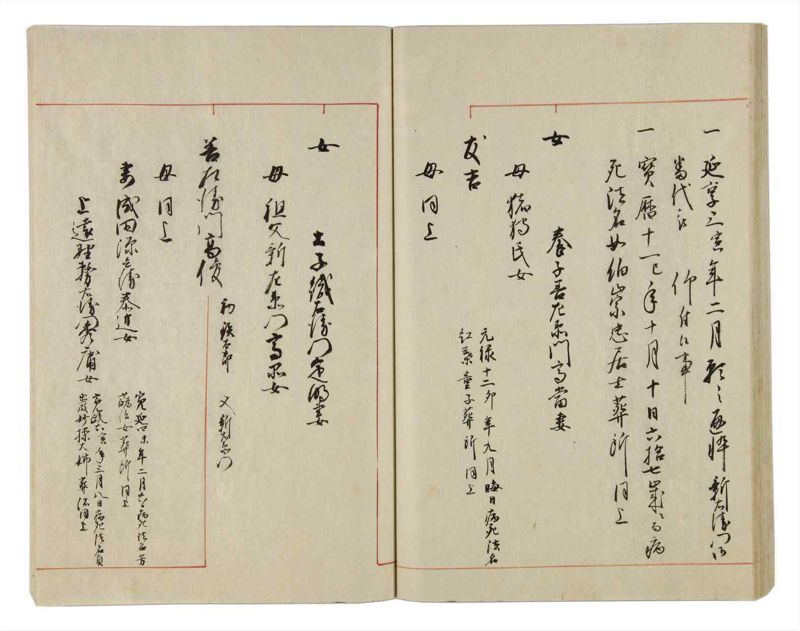 一 延享三寅年二月願之通悴新右衛門江
當代江 仰付候事
一 寶暦十一巳年十月十日六拾七歳ニ而病
死法名 伯宗忠居士葬所同上
女 養子善左衛門高當妻
母 猪狩氏女
友吉 元禄十二卯年九月晦日病死法名
紅葉童子葬所同上
母 同上
女 土子織右衛門定明妻
母 祖父新左衛門高品女
善右衛門高優 初 太郎 又新右衛門
母 同上
妻 成田源兵衛泰道女 寛延四未年二月六日病死法名芳
法女葬所同上
上遠野 右衛門秀庸女 寛政六寅年三月八日病死法名貞
操大姉葬所同上